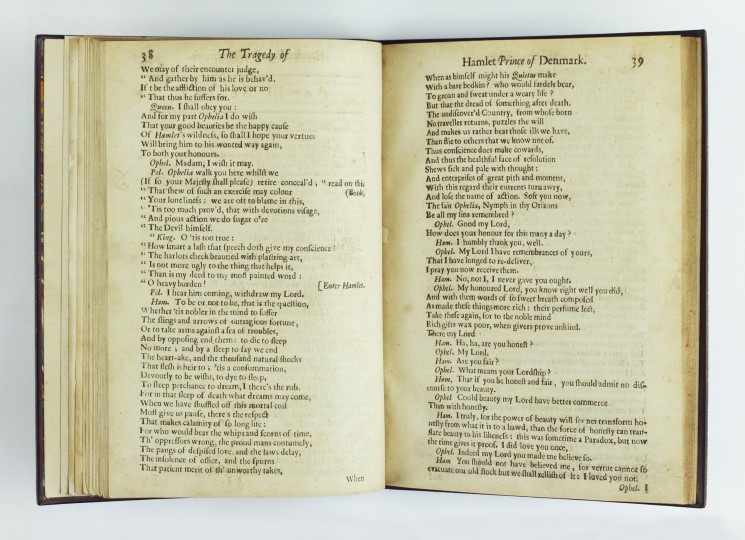 38 The Tragedy of
We may of their encounter judge,
" And gather by him as he is behav'd.
If t be the affliction of his love or no
" That thus he suffers for.
Queen. I shall obey you:
And for my part Ophelia I do wish
That your good beauties be the happy cause
Of Hamlet's wildness, so shall I hope your vertues
Will bring him to his wonted way again,
To both your honours.
Ophel. Madam, I wish it may.
Pol. Ophelia walk you here whilst we
(If so your Majesty shall please) retire conceal'd; " read on this
" That shew of such an exercise may colour (Book,
" Your loneliness: we are oft to blame in this,
" 'Tis too much prov'd, that with devotions visage,
" And pious action we do sugar o're
" The Devil himself.
" King. O 'tis too true:
" How smart a lash that speech doth give my conscience?
" The harlots cheek beautied with plastring art,
" Is not more ugly to the thing that helps it,
" Than is my deed to my most painted word:
" O heavy burden! [Enter Hamlet.
Pol. I hear him coming, withdraw my Lord.
Ham. To be or not to be, that is the question,
Whether 'tis nobler in the mind to suffer
The slings and arrows of outragious fortune,
Or to take arms against a sea of troubles,
And by opposing end them: to die to sleep
No more; and by a sleep to say we end
The heart-ake, and the thousand natural shocks
That flesh is heir to; 'tis a consummation,
Devoutly to be wisht, to dye to sleep,
To sleep perchance to dream, I there's the rub,
For in that sleep of death what dreams may come,
When we have shuffled off this mortal coil
Must give us pause, there's the respect
That makes calamity of so long life:
For who would bear the whips and scorns of time,
Th' oppressors wrong, the proud mans contumely,
The pangs of despised love, and the laws delay,
The insolence of office, and the spurns
That patient merit of th' unworthy takes,
When
Hamlet Prince of Denmark. 39
When as himself might his Quietus make
With a bare bodkin? who would fardels bear,
To groan and sweat under a weary life?
But that the dread of something after death,
The undiscover'd Country, from whose born
No traveller returns, puzzles the will
And makes us rather bear those ills we have,
Than flie to others that we know not of.
Thus conscience does make cowards,
And thus the healthful face of resolution
Shews sick and pale with thought:
And enterprises of great pith and moment,
With this regard their currents turn awry,
And lose the name of action. Soft you now,
The fair Ophelia, Nymph in thy Orizons
Be all my sins remembred?
Ophel. Good my Lord,
How does your honour for this many a day?
Ham. I humbly thank you, well.
Ophel. My Lord I have remembrances of yours,
That I have longed to re-deliver,
I pray you now receive them.
Ham. No, not I, I never gave you ought.
Ophel. My honoured Lord, you know right well you did,
And with them words of so sweet breath composed
As made these things more rich: their perfume lost,
Take these again, for to the noble mind
Rich gifts wax poor, when givers prove unkind.
There my Lord
Ham. Ha, ha, are you honest?
Ophel. My Lord.
Ham. Are you fair?
Ophel. What means your Lordship?
Ham. That if you be honest and fair, you should admit no dis-
course to your beauty.
Ophel. Could beauty my Lord have better commerce
Than with honesty.
Ham. I truly, for the power of beauty will sooner transform ho-
nesty from what it is to a bawd, than the force of honesty can tran-
slate beauty to his likeness: this was sometime a Paradox, but now
the time gives it proof. I did love you once,
Ophel. Indeed my Lord you made me believe so.
Ham You should not have believed me, for vertue cannot so
evacuate our old stock but we shall rellish of it: I loved you not.
Ophel. I